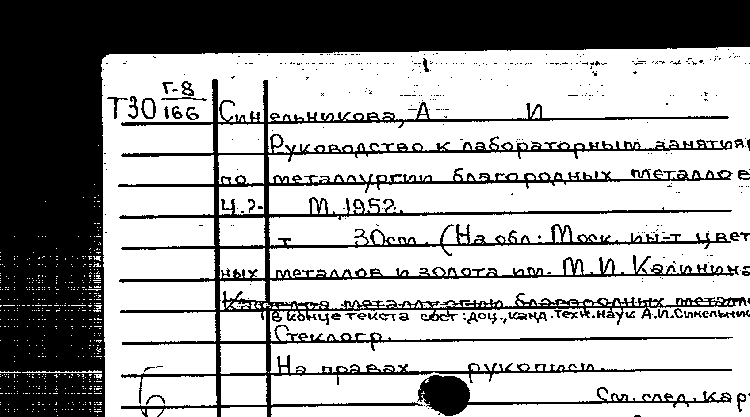 Г-8
Т30 166 Синельникова, А И
Руководство к лабораторным занятия
по металлургии благородных металлов
Ч. М. 1952.
т 30см. (На обл: Моск. ин-т цвет
ных металлов и золота им. М.И. Калинина
Кафедра металлургию благородных металл
В конце текста сост: доц., канд. техн. наук А.И. Синельни
Стеклогр.
На правах рукописи.
См. след. кар